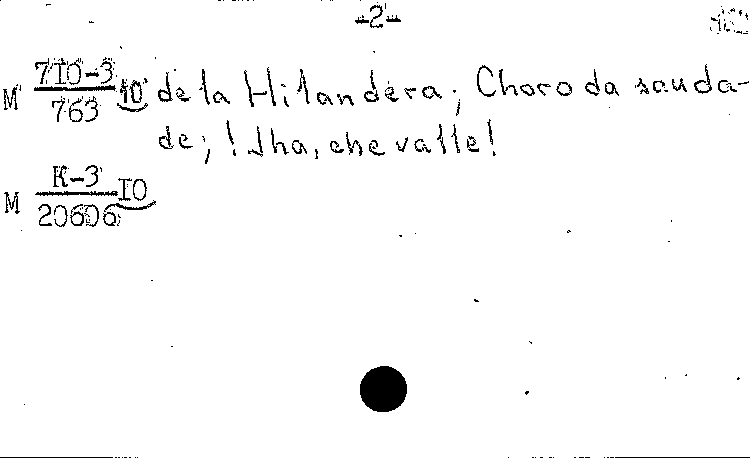 -2-
М 7IO-3/763 IO de la Hilandera; Choro da sauda-
de; ! Jha, che valle!
М К-3/20606 IO